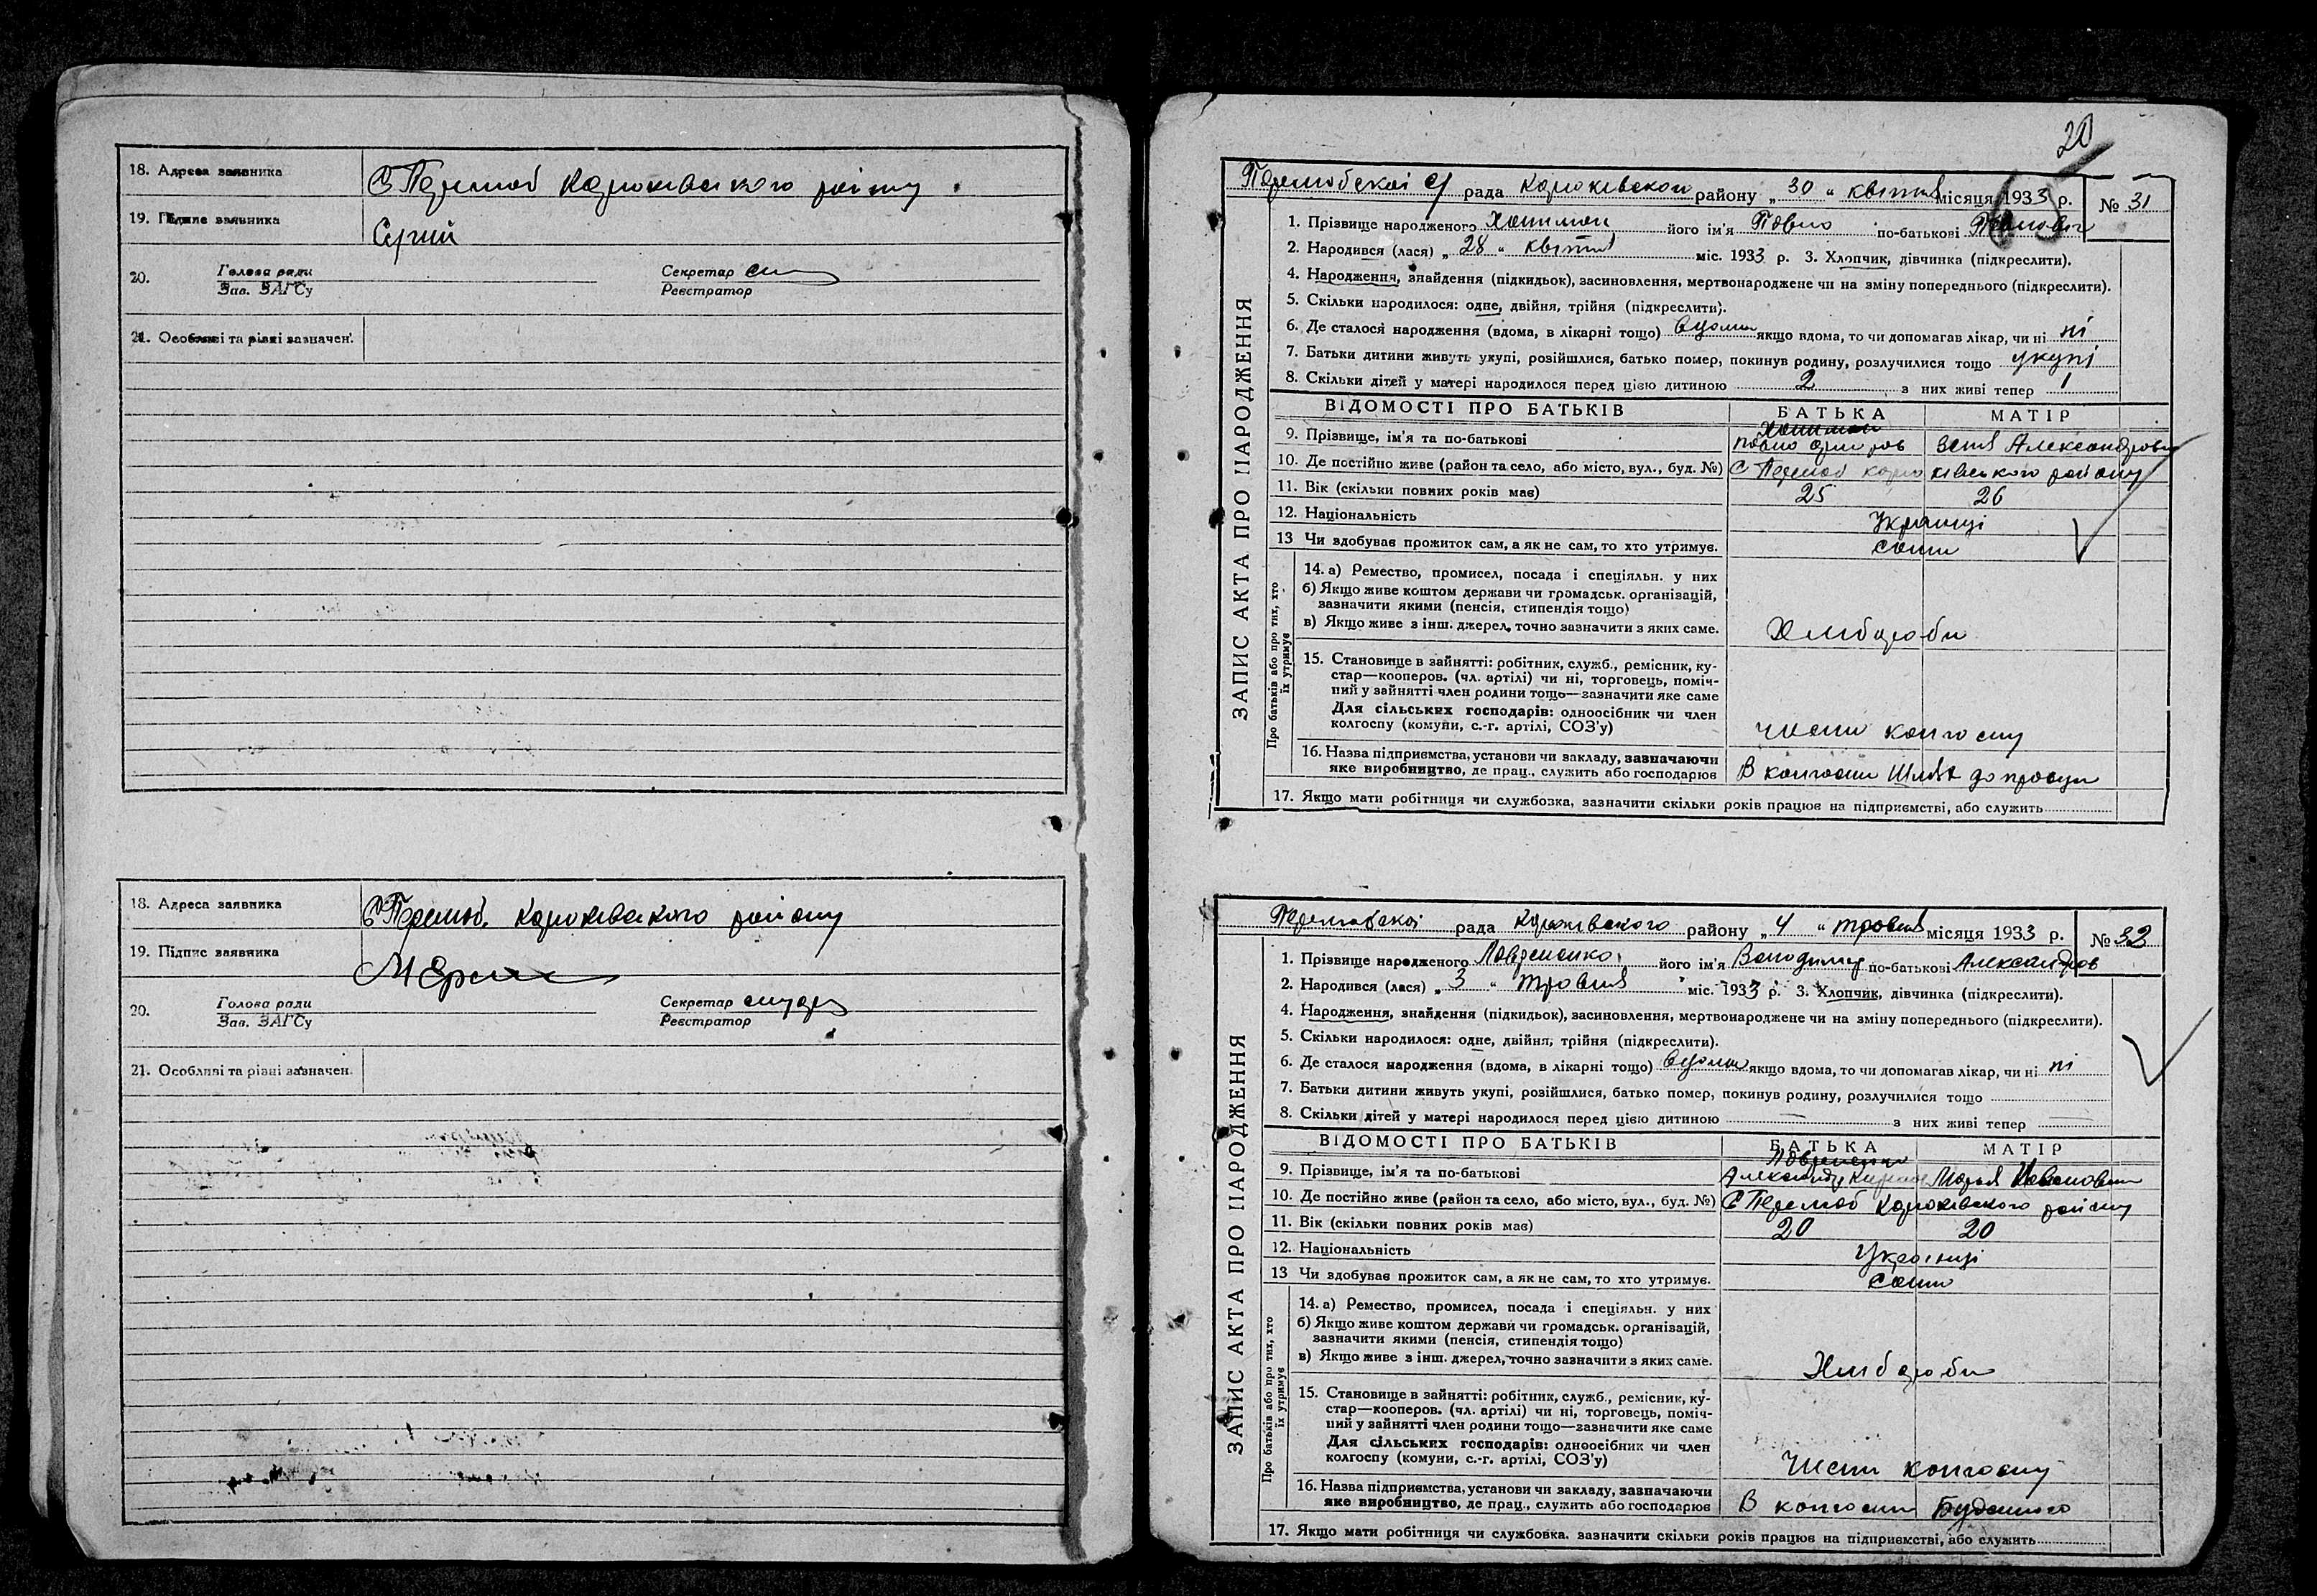 18. Адреса заявника
19. Підпис заявника
Сергій
20. Голова ради
Зав. ЗАГСу
Секретар
Реєстратор
21. Особливі та різні зазначен.
18. Адреса заявника району
19. Підпис заявника
20. Голова ради
Зав. ЗАГСу
Секретар
Реєстратор
21. Особливі та різні зазначен.
20
ЗАПИС АКТА ПРО НАРОДЖЕННЯ
рада району „ 30 “ квітня місяця 1933 р. № 31
1. Прізвище народженого його ім'я Павло по-батькові
2. Народився (лася) „ 28 “ квітня міс. 1933 р. 3. Хлопчик, дівчинка (підкреслити).
4. Народження, знайдення (підкидьок), засиновлення, мертвонароджене чи на зміну попереднього (підкреслити).
5. Скільки народилося: одне, двійня, трійня (підкреслити).
6. Де сталося народження (вдома, в лікарні тощо) вдома якщо вдома, то чи допомагав лікар, чи ні ні
7. Батьки дитини живуть укупі, розійшлися, батько помер, покинув родину, розлучилися тощо укупі
8. Скільки дітей у матері народилося перед цією дитиною 2 з них живі тепер 1
ВІДОМОСТІ ПРО БАТЬКІВ БАТЬКА МАТІР
9. Прізвище, ім'я та по-батькові
10. Де постійно живе (район та село, або місто, вул., буд. №) району
11. Вік (скільки повних років має) 25 26
12. Національність Українці
13 Чи здобуває прожиток сам, а як не сам, то хто утримує. сами
Про батьків або про тих, хто їх утримує
14. а) Ремество, промисел, посада і спеціяльн. у них
б) Якщо живе коштом держави чи громадськ. організацій,
зазначити якими (пенсія, стипендія тощо)
в) Якщо живе з інш. джерел, точно зазначити з яких саме. Хлибороби
15. Становище в зайнятті: робітник, служб., ремісник, ку-
стар—кооперов. (чл. артілі) чи ні, торговець, поміч-
ний у зайнятті член родини тощо—зазначити яке саме
Для сільських господарів: одноосібник чи член
колгоспу (комуни, с.-г. артілі, СОЗ'у) члени колгоспу
16. Назва підприємства, установи чи закладу, зазначаючи
яке виробництво, де прац., служить або господарює В колгоспи Шлях до праци
17. Якщо мати робітниця чи службовка, зазначити скільки років працює на підприємстві, або служить
ЗАПИС АКТА ПРО НАРОДЖЕННЯ
рада району „ 4 “ травня місяця 1933 р. № 32
1. Прізвище народженого Лавриненко його ім'я Володимир по-батькові Александров
2. Народився (лася) „ 3 “ травня міс. 1933 р. 3. Хлопчик, дівчинка (підкреслити).
4. Народження, знайдення (підкидьок), засиновлення, мертвонароджене чи на зміну попереднього (підкреслити).
5. Скільки народилося: одне, двійня, трійня (підкреслити).
6. Де сталося народження (вдома, в лікарні тощо) вдома якщо вдома, то чи допомагав лікар, чи ні ні
7. Батьки дитини живуть укупі, розійшлися, батько помер, покинув родину, розлучилися тощо
8. Скільки дітей у матері народилося перед цією дитиною — з них живі тепер
ВІДОМОСТІ ПРО БАТЬКІВ БАТЬКА МАТІР
9. Прізвище, ім'я та по-батькові Марья Ивановна
10. Де постійно живе (район та село, або місто, вул., буд. №) району
11. Вік (скільки повних років має) 20 20
12. Національність Українці
13 Чи здобуває прожиток сам, а як не сам, то хто утримує. сами
Про батьків або про тих, хто їх утримує
14. а) Ремество, промисел, посада і спеціяльн. у них
б) Якщо живе коштом держави чи громадськ. організацій,
зазначити якими (пенсія, стипендія тощо)
в) Якщо живе з інш. джерел, точно зазначити з яких саме. Хлибороби
15. Становище в зайнятті: робітник, служб., ремісник, ку-
стар—кооперов. (чл. артілі) чи ні, торговець, поміч-
ний у зайнятті член родини тощо—зазначити яке саме
Для сільських господарів: одноосібник чи член
колгоспу (комуни, с.-г. артілі, СОЗ'у) Члени колгоспу
16. Назва підприємства, установи чи закладу, зазначаючи
яке виробництво, де прац., служить або господарює В колгоспи Буденного
17. Якщо мати робітниця чи службовка, зазначити скільки років працює на підприємстві, або служить